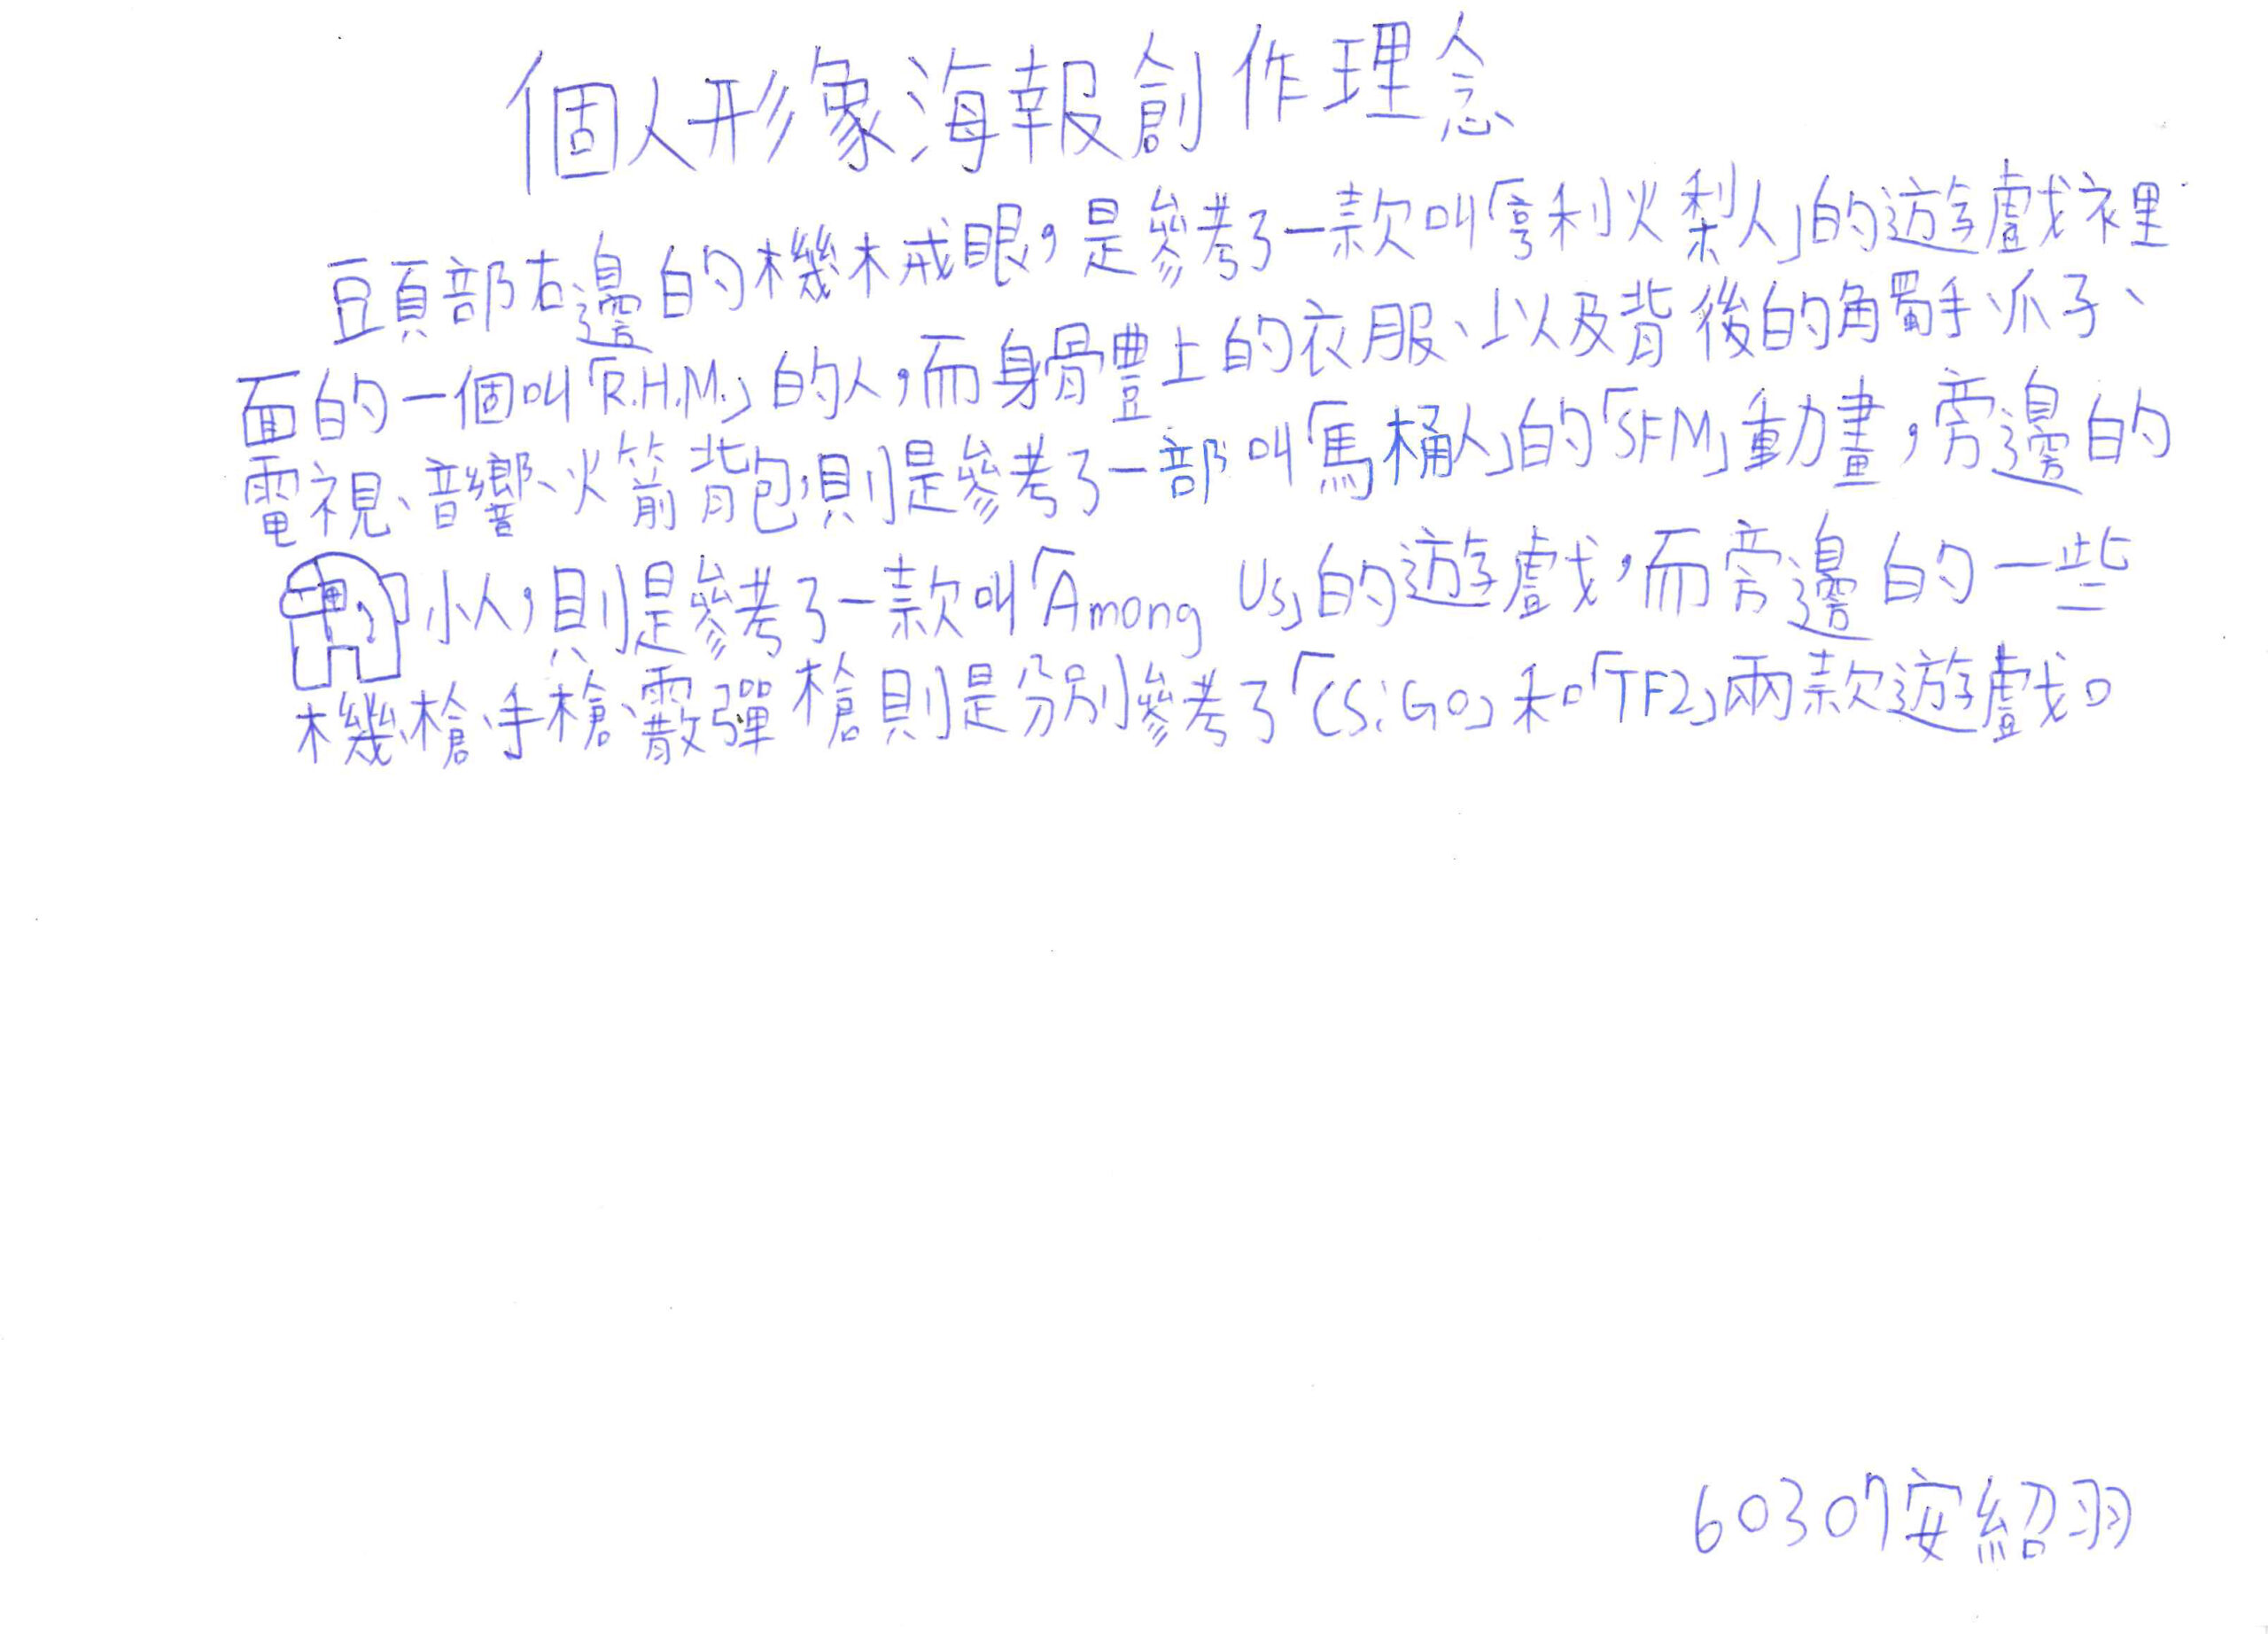 個人形象海報創作理念
頭部右邊的機械眼，是參考了一款叫「亨利火梨人」的遊戲裡
面的一個叫「R.H.M.」的人，而身體上的衣服、以及背後的觸手爪子、
電視、音響、火箭背包，則是參考了一部叫「馬桶人」的「SFM」動畫，旁邊的
小人，則是參考了一款叫「Among Us」的遊戲，而旁邊的一些
機槍、手槍、霰彈槍則是分別參考了「CS:GO」和「TF2」兩款遊戲。
60307安紹羽